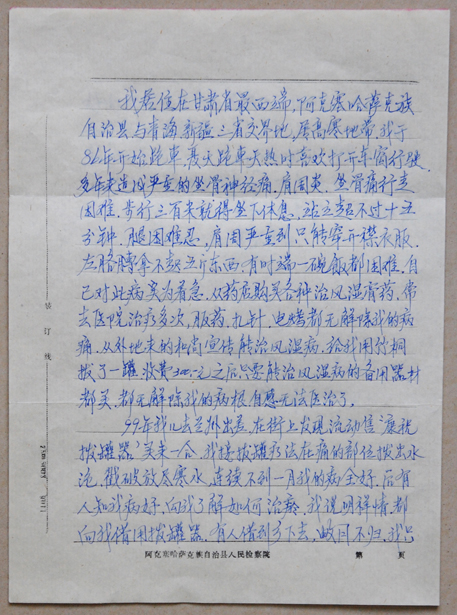 我居住在甘肃省最西端，阿克塞哈萨克族
自治县与青海新疆三省交界地，属高寒地带，我于
86年开始跑车，夏天跑车天热时喜欢打开车窗行驶
多年来造成严重的坐骨神经痛，肩周炎，坐骨痛行走
困难，步行三百米就得坐下休息，站立超不过十五
分钟，腿困难忍，肩周严重到只能穿开襟衣服，
左胳膊拿不起五斤东西，有时端一碗饭都困难，自
己对此病实为着急，从药店购买各种治风湿膏药，常
去医院治疗多次，服药、扎针、电烤都无解除我的病
痛，从外地来的和尚宣传能治风湿病，给我用竹桐
拔了一罐，收费300元之后，只要能治风湿病的备用器材
都买，都无解除我的病根，自愿无法医治了。
99年我儿去兰州出差，在街上发现流动售"康祝
拔罐器"买来一合，我按拔罐疗法在痛的部位拔出水
泡，戳破放尽寒水，连续不到一月我的病全好，后有
人知我病好，向我了解如何治疗，我说明祥情，都
向我借用拔罐器，有人借到乡下去，数日不归，我只
装订线
阿克塞哈萨克族自治县人民检察院 第 页